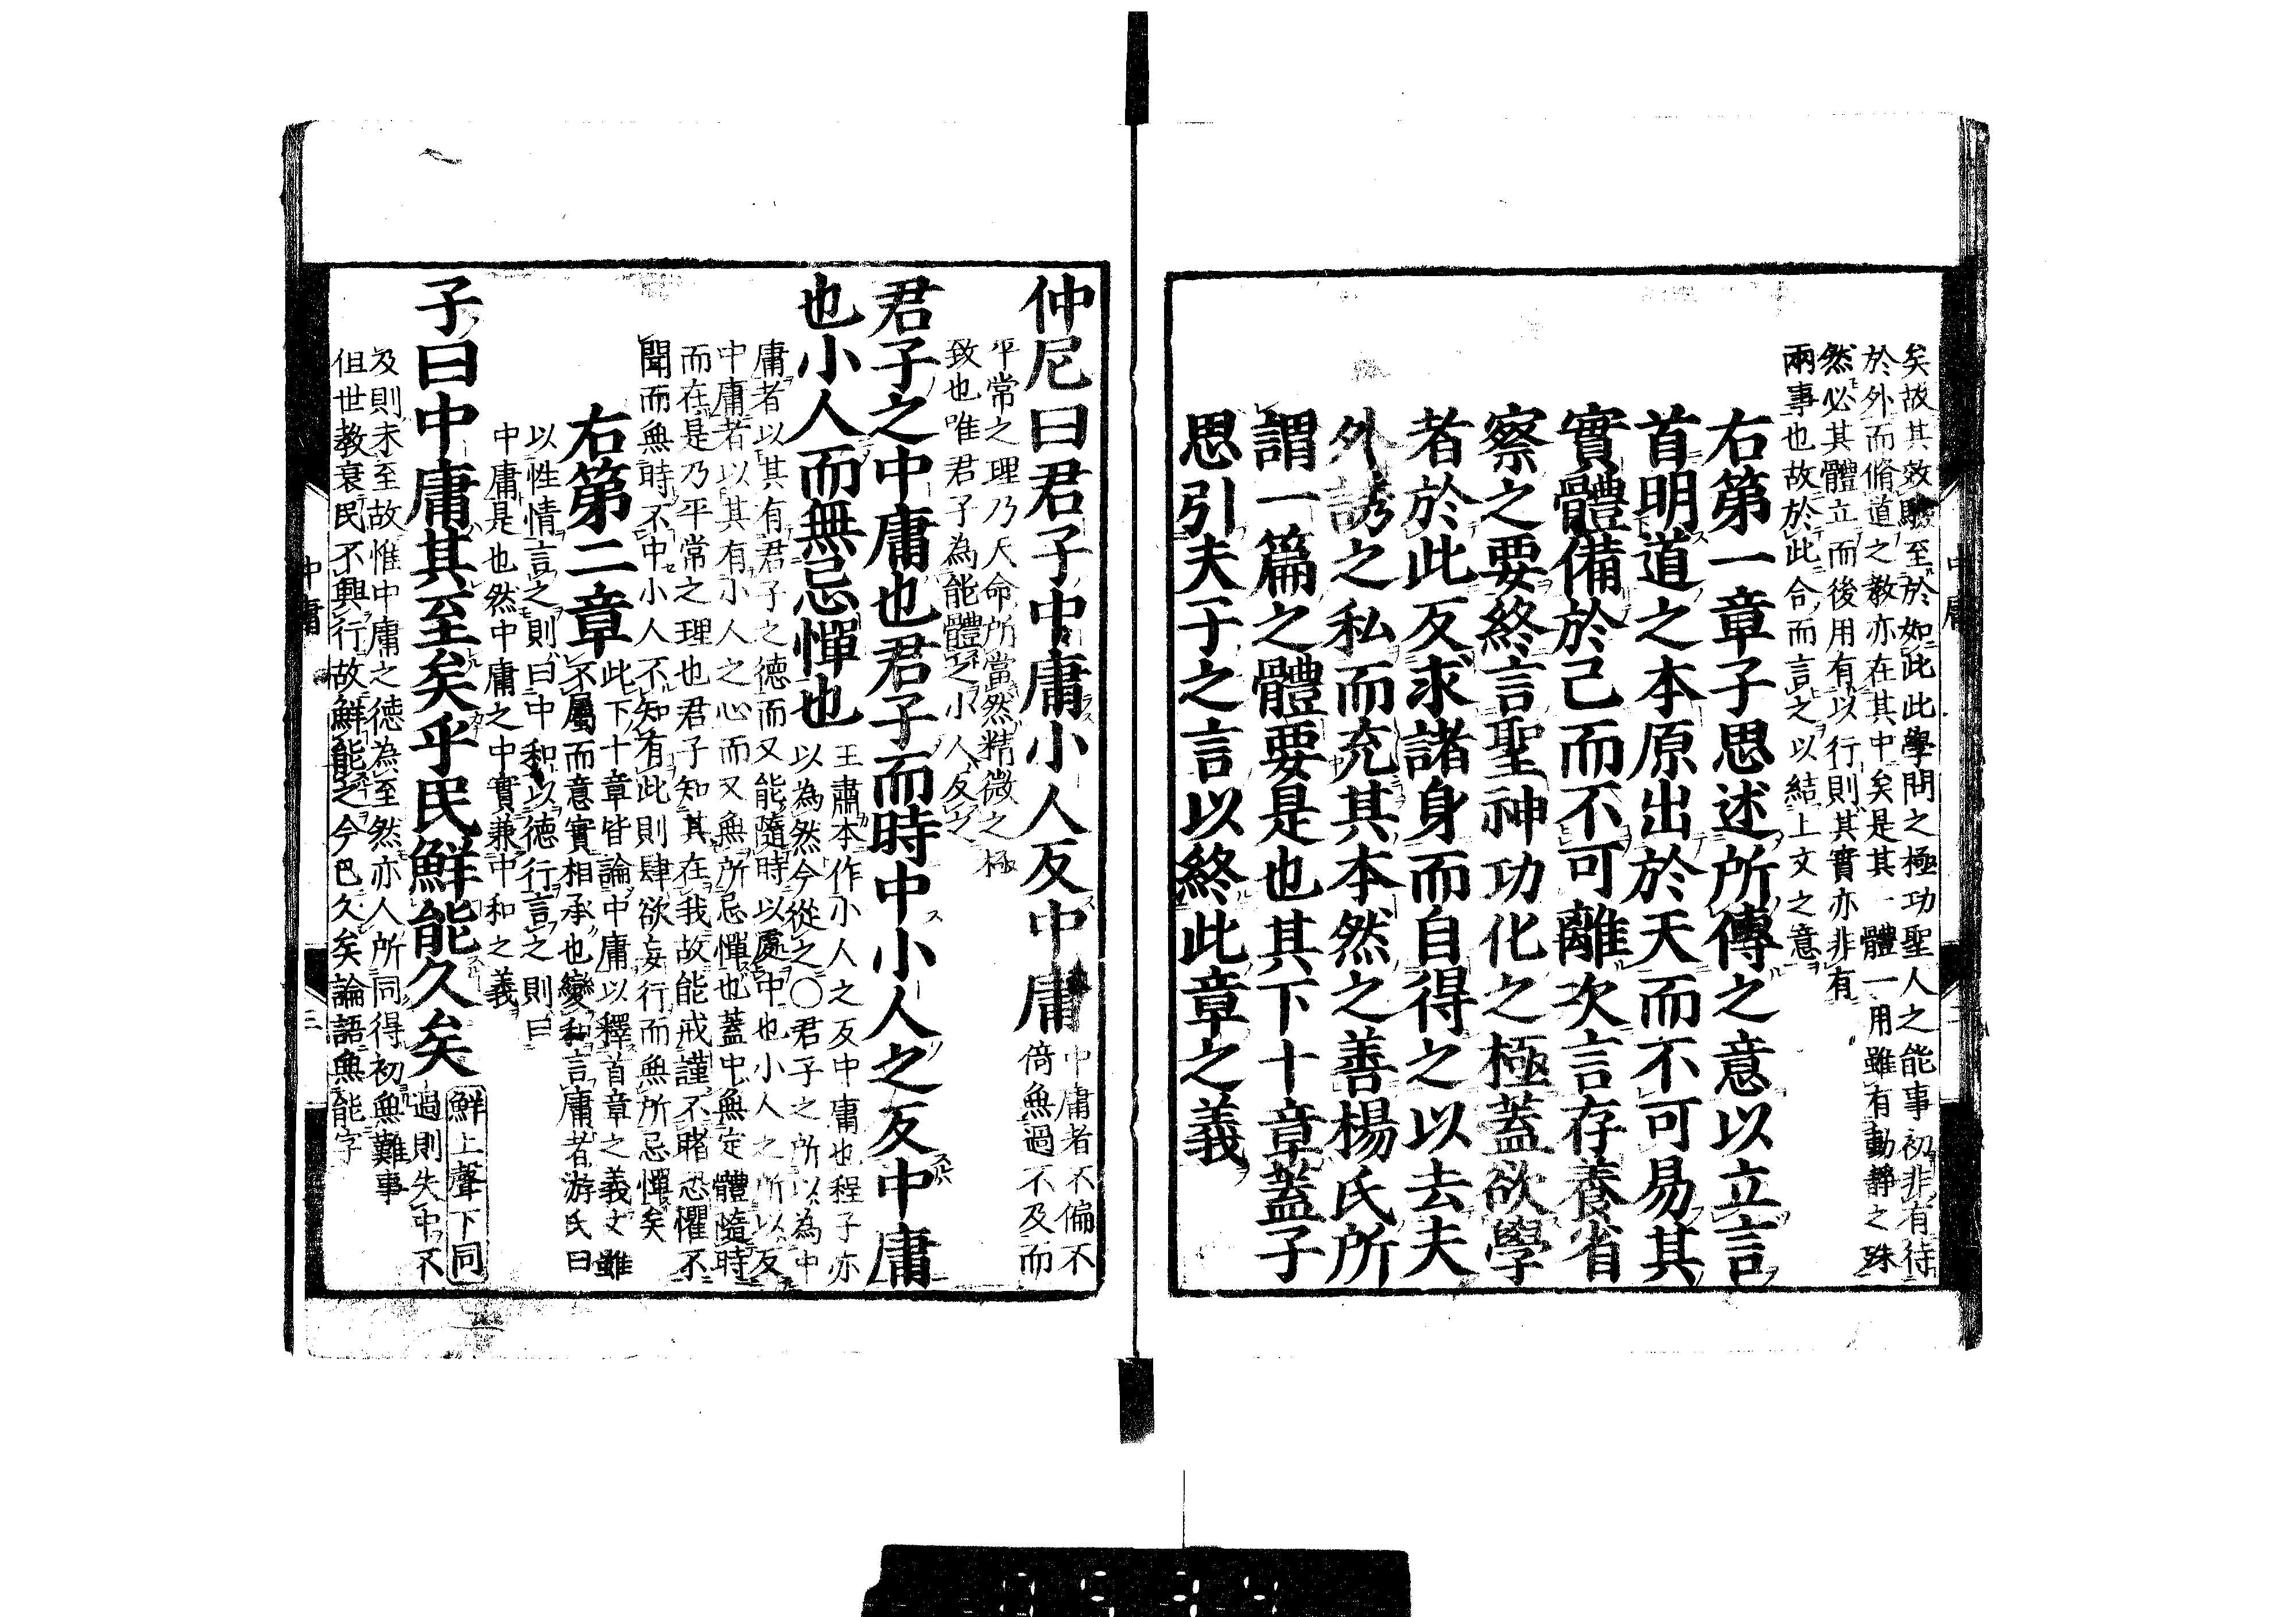 矣故其效驗至於如此此學問之極功聖人之能事初非有待
於外而脩道之教亦在其中矣是其一體一用雖有動靜之殊
然必其體立而後用有以行則其實亦非有
兩事也故於此合而言之以結上文之意
右第一章子思述所傳之意以立言
首明道之本原出於天而不可易其
實體備於己而不可離次言存養省
察之要終言聖神功化之極蓋欲學
者於此反求諸身而自得之以去夫
外誘之私而充其本然之善楊氏所
謂一篇之體要是也其下十章蓋子
思引夫子之言以終此章之義
仲尼曰君子中庸小人反中庸
中庸者不偏不
倚無過不及而
平常之理乃天命所當然精微之極
致也唯君子為能體之小人反之
君子之中庸也君子而時中小人之反中庸
也小人而無忌憚也
王肅本作小人之反中庸也程子亦
以為然今從之〇君子之所以為中
庸者以其有君子之德而又能隨時以處中也小人之所以反
中庸者以其有小人之心而又無所忌憚也蓋中無定體隨時
而在是乃平常之理也君子知其在我故能戒謹不睹恐懼不
聞而無時不中小人不知有此則肆欲妄行而無所忌憚矣
右第二章
此下十章皆論中庸以釋首章之義文雖
不屬而意實相承也變和言庸者游氏曰
以性情言之則曰中和以德行言之則曰
中庸是也然中庸之中實兼中和之義
子曰中庸其至矣乎民鮮能久矣
鮮上聲下同
過則失中不
及則未至故惟中庸之德為至然亦人所同得初無難事
但世教衰民不興行故鮮能之今已久矣論語無能字
中庸
三